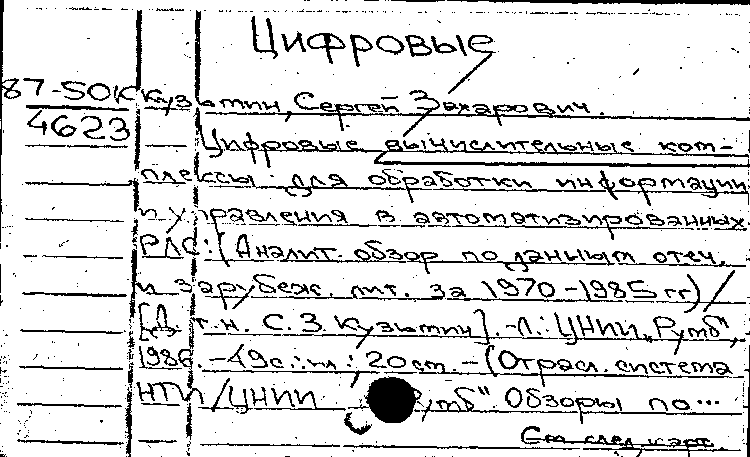 Цифровые
87-50К Кузьмин, Сергей Захарович.
4623
Цифровые вычислительные ком-
плексы для обработки информации
и управления в автоматизированных
РЛС: (Аналит. обзор по данным отеч.
и зарубеж. лит. за 1970-1985 гг) /
[Д. т. н. С. З. Кузьмин]. - Л.: ЦНИИ "Румб",
1986. - 49 с.: ил.; 20 см. - (Отрасл. система
НТИ / ЦНИИ "Румб". Обзоры по...
См. след. карт.